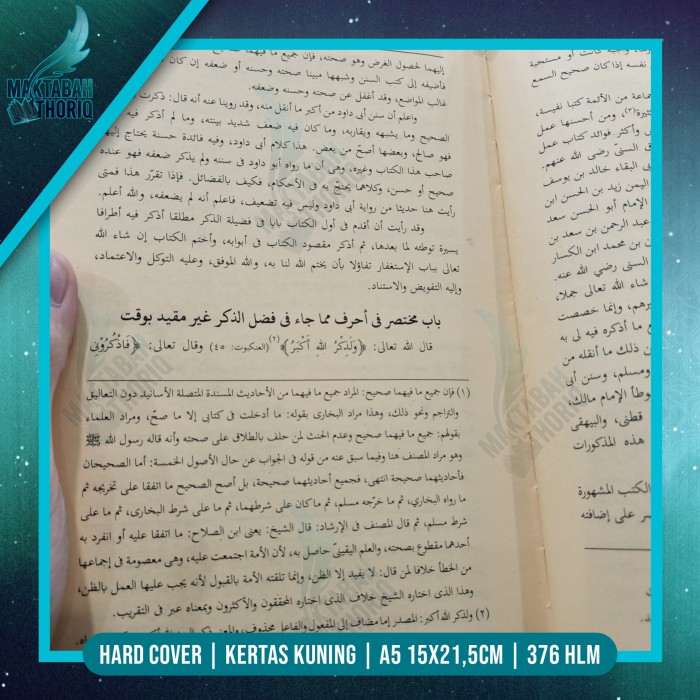 MAKTABAH
THORIQ
إليهما لحصول الغرض وهو صحته، فإن جميع ما فيهما
فأضيفه إلى كتب السنن وشبهها مبينا صحته وحسنه أو ضعفه إن كان
غالب المواضع، وقد أغفل عن صحته وحسنه وضعفه.
واعلم أن سنن أبى داود من أكبر ما أنقل منه، وقد روينا عنه أنه قال: ذكرت
الصحيح وما يشبهه ويقاربه، وما كان فيه ضعف شديد بينته، وما لم أذكر فيه
فهو صالح، وبعضها أصحّ من بعض. هذا كلام أبى داود، وفيه فائدة حسنة يحتاج إليها
صاحب هذا الكتاب وغيره، وهى أن ما رواه أبو داود فى سننه ولم يذكر ضعفه فهو عنده
صحيح أو حسن، وكلاهما يحتجّ به فى الأحكام، فكيف بالفضائل. فإذا تقرّر هذا فمتى
رأيت هنا حديثا من رواية أبى داود وليس فيه تضعيف، فاعلم أنه لم يضعفه، والله أعلم.
وقد رأيت أن أقدم فى أول الكتاب بابا فى فضيلة الذكر مطلقا أذكر فيه أطرافا
يسيرة توطئة لما بعدها، ثم أذكر مقصود الكتاب فى أبوابه، وأختم الكتاب إن شاء الله
تعالى بباب الإستغفار تفاؤلا بأن يختم الله لنا به، والله الموفق، وعليه التوكل والاعتماد،
وإليه التفويض والاستناد.
باب مختصر فى أحرف مما جاء فى فضل الذكر غير مقيد بوقت
قال الله تعالى: ﴿وَلَذِكْرُ اللهِ أَكْبَرُ﴾(٢) (العنكبوت: ٤٥) وقال تعالى: ﴿فَاذْكُرُوْنِى
(١) فإن جميع ما فيهما صحيح: المراد جميع ما فيهما من الأحاديث المسندة المتصلة الأسانيد دون التعاليق
والتراجم ونحو ذلك، وهذا مراد البخارى بقوله: ما أدخلت فى كتابى إلا ما صحّ، ومراد العلماء
بقولهم: جميع ما فيهما صحيح وعدم الحنث لمن حلف بالطلاق على صحته وأنه قاله رسول الله ﷺ
وهو مراد المصنف هنا وفيما سبق عنه من قوله فى الجواب عن حال الأصول الخمسة: أما الصحيحان
فأحاديثهما صحيحة انتهى، فجميع أحاديثهما صحيحة، بل أصح الصحيح ما اتفقا على تخريجه ثم
ما رواه البخاري، ثم ما خرّجه مسلم، ثم ما كان على شرطهما، ثم ما على شرط البخارى، ثم ما على
شرط مسلم، ثم قال المصنف فى الإرشاد: قال الشيخ: يعنى ابن الصلاح: ما اتفقا عليه أو انفرد به
أحدهما مقطوع بصحته، والعلم اليقينىّ حاصل به، لأن الأمة اجتمعت عليه، وهى معصومة فى إجماعها
من الخطأ خلافا لمن قال: لا يفيد إلا الظن، وإنما تلقته الأمة بالقبول لأنه يجب عليها العمل بالظن،
وهذا الذى اختاره الشيخ خلاف الذى اختاره المحققون والأكثرون وبمعناه عبر فى التقريب.
(٢) ولذكر الله أكبر: المصدر إما مضاف إلى المفعول والفاعل محذوف،
وجبه كانت أو مستحبة
نفسه إذا كان صحيح السمع
جماعة من الأئمة كتبا نفيسة،
ومن أحسنها عمل
وأكثر فوائد كتاب عمل
السنّى رضى الله عنهم.
البقاء خالد بن يوسف
اليمن زيد بن الحسن ابن
الإمام أبو الحسن سعد
عبد الرحمن بن سعد بن
بن محمد ابن الكسار
السنى رضي الله عنه.
شاء الله تعالى جملا،
وإنما خصصت
ما أذكره فيه لى به
ذلك ما أنقله من
ومسلم، وسنن أبى
الإمام مالك،
قطنى، والبيهقى
هذه المذكورات
الكتب المشهورة
على إضافته
HARD COVER | KERTAS KUNING | A5 15X21,5CM | 376 HLM